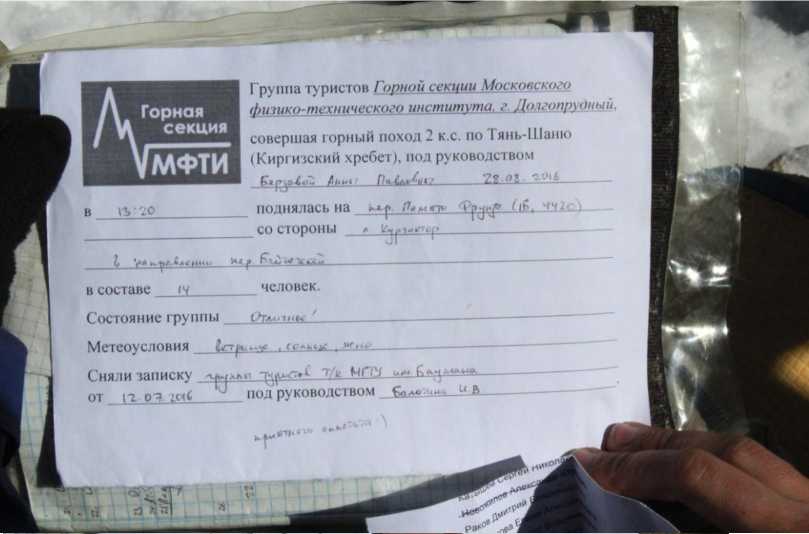 Горная
секция
МФТИ
Группа туристов Горной секции Московского
физико-технического института, г. Долгопрудный,
совершая горный поход 2 к.с. по Тянь-Шаню
(Киргизский хребет), под руководством
Берзовой Анны Павловны 28.08.2016
в 13:20 поднялась на пер. Памяти Фрунзе (1Б, 4420)
со стороны л. Кургактор
в направлении пер.
в составе 14 человек.
Состояние группы Отличное!
Метеоусловия ветрище, солнце, ясно
Сняли записку группы туристов т/к МГТУ им. Баумана
от 12.07.2016 под руководством И.В
приятного :)
Сергей Никола
Новожилов Алекса
Раков Дмитрий В